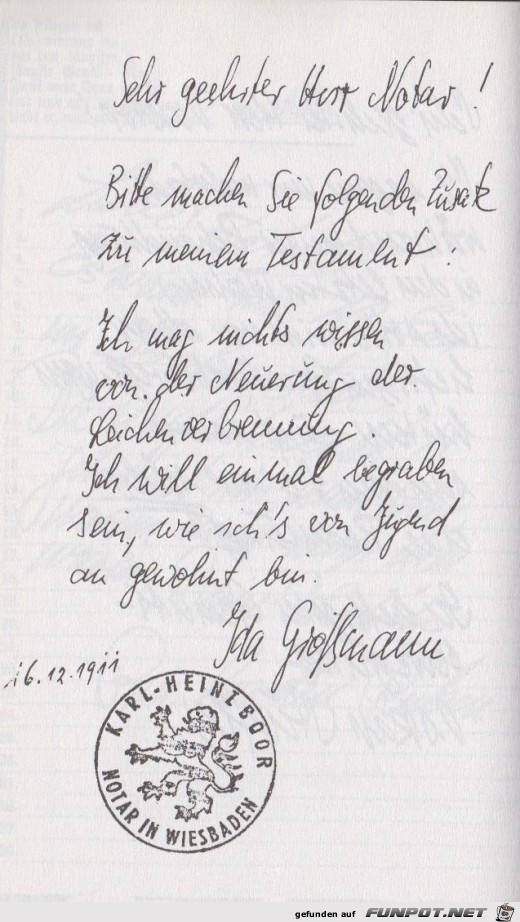 Sehr geehrter Herr Notar!
Bitte machen Sie folgenden Zusatz
zu meinem Testament:
Ich mag nichts wissen
von der Neuerung der
Leichenverbrennung.
Ich will einmal begraben
sein, wie ich's von Jugend
an gewohnt bin.
Ida Großmann
16.12.1911
KARL-HEINZ BOOR
NOTAR IN WIESBADEN
gefunden auf FUNPOT.NET